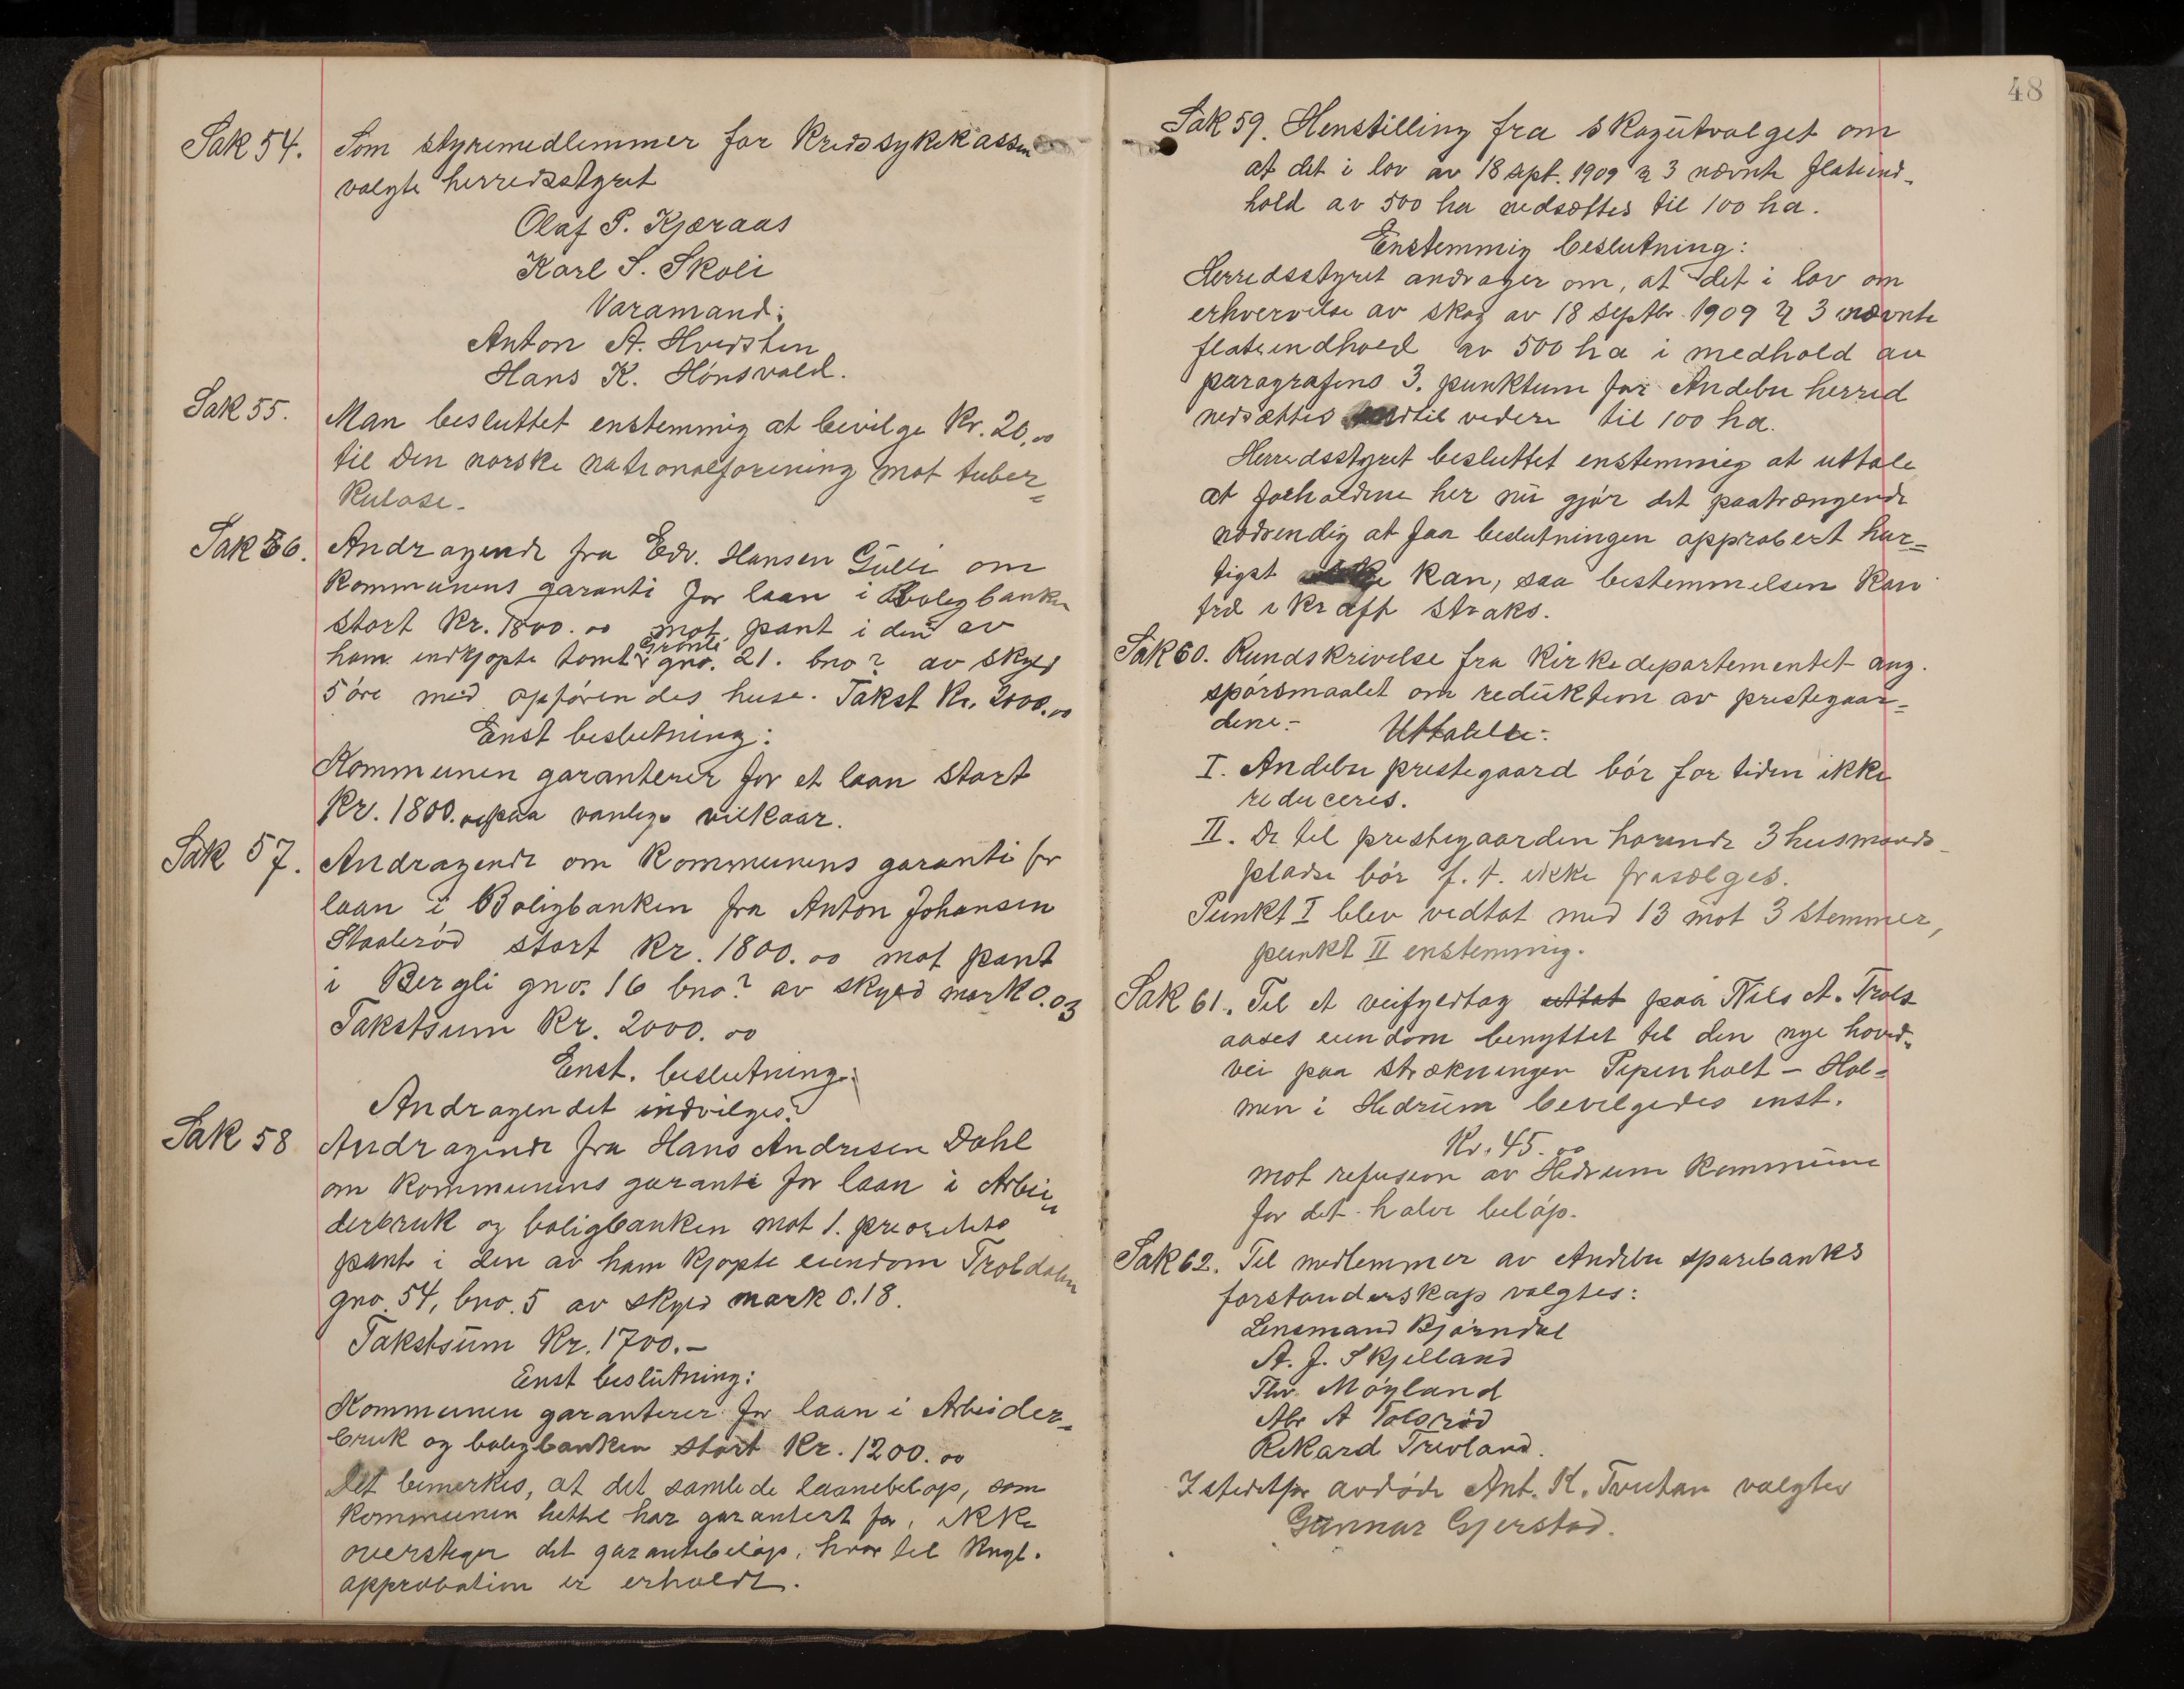 Sak 54. Som styremedlemmer for Kredssykekassen
valgte herredsstyret
Olaf P. Kjæraas
Karl S. Skoli
Varamand:
Anton A. Hvidsten
Hans K. Hønsvald.
Sak 55. Man besluttet enstemmig at bevilge Kr. 20,00
til Den norske nationalforening mot tuber=
kulose.
Sak 56. Andragende fra Edv. Hansen Gulli om
Kommunens garanti for laan i Boligbanken
stort Kr. 1800.00 mot pant i den av
ham indkjøpte tomt Grønli gno. 21. bno? av skyld
5 øre med opførendes huse. Takst Kr. 2000.00
Enst beslutning:
Kommunen garanterer for et laan stort
Kr. 1800.00 paa vanlige vilkaar.
Sak 57. Andragende om Kommunens garanti for
laan i Boligbanken fra Anton Johansen
Staalerød stort Kr. 1800.00 mot pant
i Bergli gno. 16 bno? av skyld mark 0.03
Takstsum Kr. 2000.00
Enst. beslutning:
Andragendet indvilges.
Sak 58 Andragende fra Hans Andresen Dahl
om Kommunens garanti for laan i Arbei=
derbruk og boligbanken mot 1. prioritets
pant i den av ham kjøpte eiendom Troldalen
gno. 54, bno. 5 av skyld mark 0.18.
Takstsum Kr. 1700.-
Enst beslutning:
Kommunen garanterer for laan i Arbeider=
bruk og boligbanken stort Kr. 1200.00
Det bemerkes, at det samlede laanebeløp, som
Kommunen hittil har garantert for, ikke
overstiger det garantibeløp, hvor til Kngl.
approbation er erholdt.
48
Sak 59. Henstilling fra skogutvalget om
at det i lov av 18 sept. 1909 § 3 nævnte flateind-
hold av 500 ha nedsættes til 100 ha.
Enstemmig beslutning:
Herredsstyret andrager om, at det i lov om
erhvervelse av skog av 18 septbr. 1909 § 3 nævnte
flateindhold av 500 ha i medhold av
paragrafens 3. punktum for Andebu herred
nedsættes indtil videre til 100 ha.
Herredsstyret besluttet enstemmig at uttale
at forholdene her nu gjør det paatrængende
nødvendig at faa beslutningen approbert hur=
tigst kan, saa bestemmelsen kan
træ i kraft straks.
Sak 60. Rundskrivelse fra Kirkedepartementet ang.
spørsmaalet om reduktion av prestegaar=
dene.- Uttalelse:
I. Andebu prestegaard bør for tiden ikke
reduceres.
II. De til prestegaarden hørende 3 husmands-
pladse bør f. t. ikke frasælges.
Punkt I blev vedtat med 13 mot 3 stemmer,
punkt II enstemmig.
Sak 61. Til et veifyldtag uttat paa Nils A. Trols
aases eiendom benyttet til den nye hoved-
vei paa strækningen Pipenholt - Hol=
men i Hedrum bevilgedes enst.
Kr. 45.00
mot refusion av Hedrum Kommune
for det halve beløp.
Sak 62. Til medlemmer av Andebu sparebanks
forstanderskap valgtes:
Lensmand Bjørndal
A. J. Skjelland
Thv. Møyland
Abr A Tolsrød
Rikard Trevland.
Istedetfor avdøde Ant. K. valgtes
Gunnar Gjerstad.